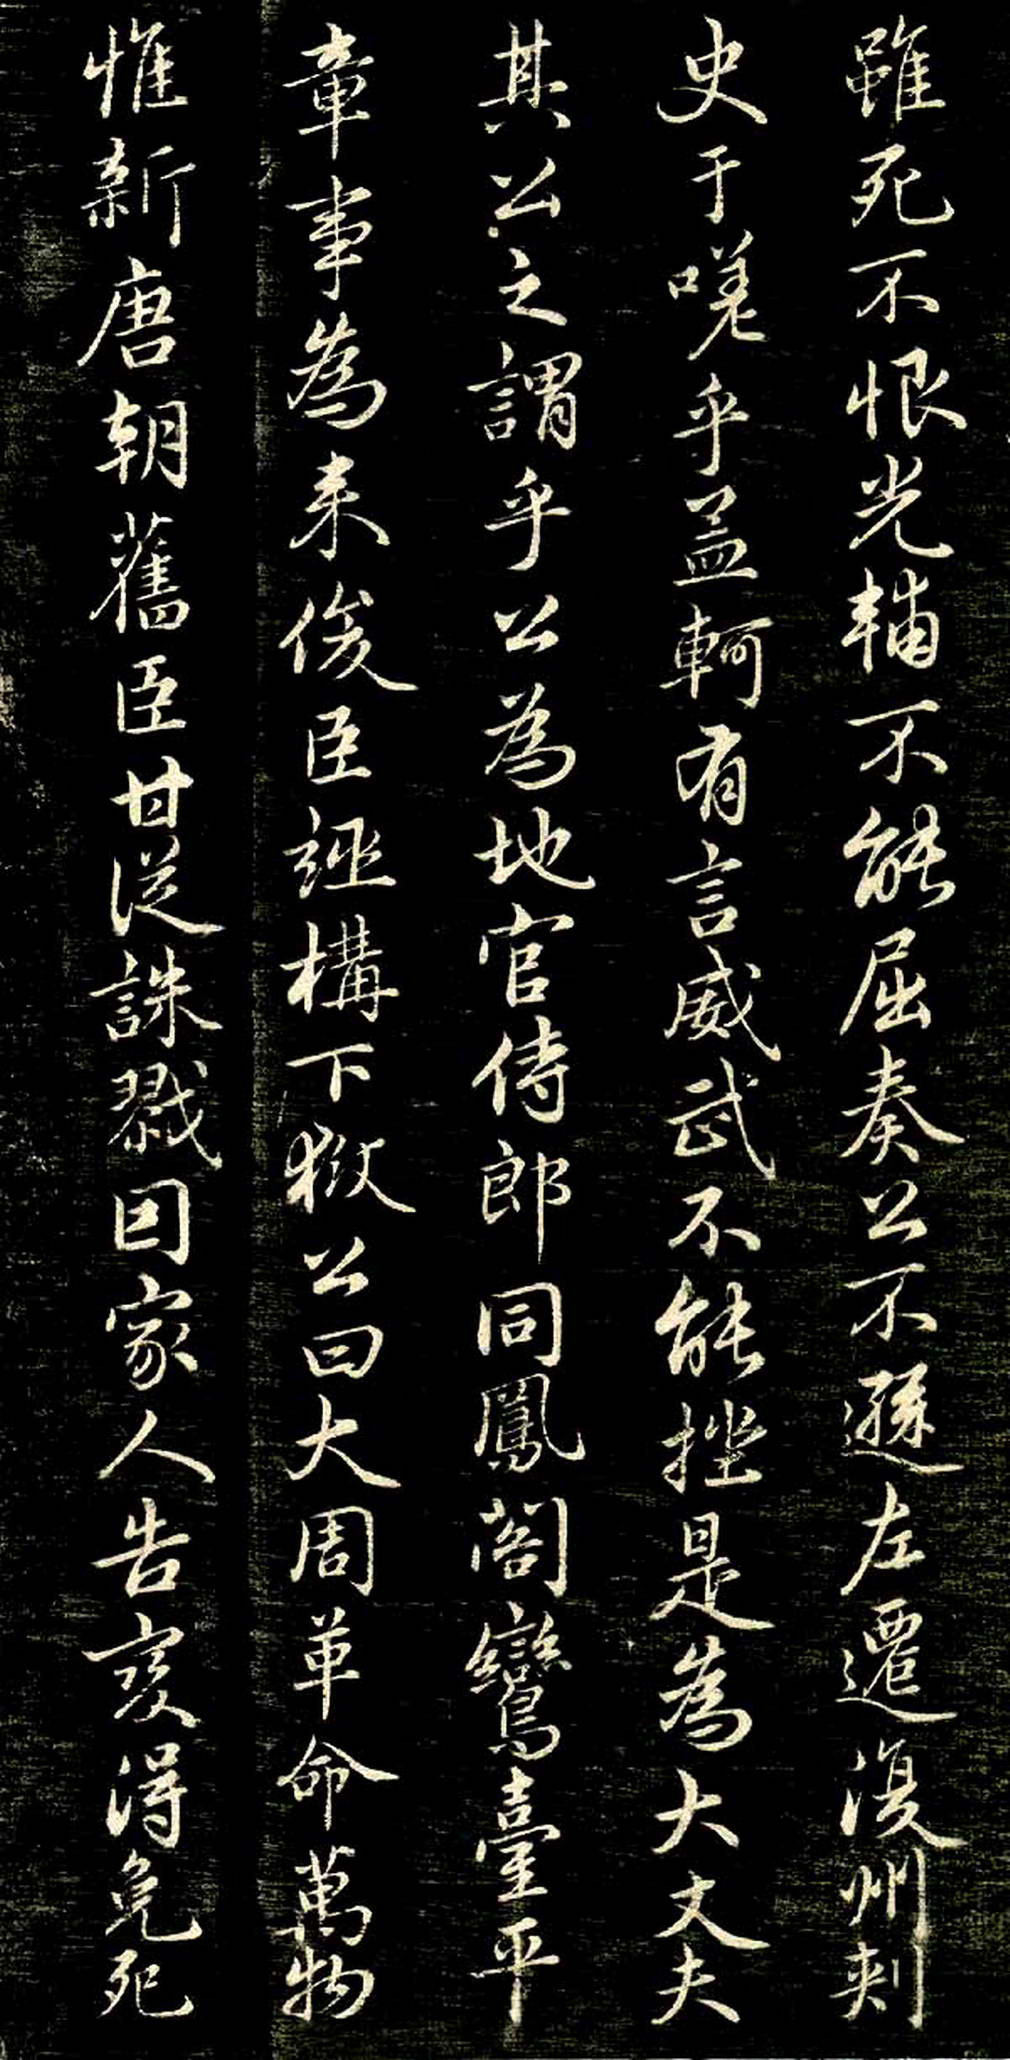 雖死不恨光輔不能屈奏公不遜左遷復州刺
史于嗟乎盖軻有言威武不能挫是為大丈夫
其公之謂乎公為地官侍郎同鳳閣鸞臺平
章事為来俊臣誣構下獄公曰大周革命萬物
惟新唐朝舊臣甘從誅戮因家人告变得免死